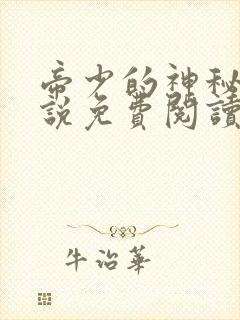 帝少的神秘
說免費閱讀
牛治華